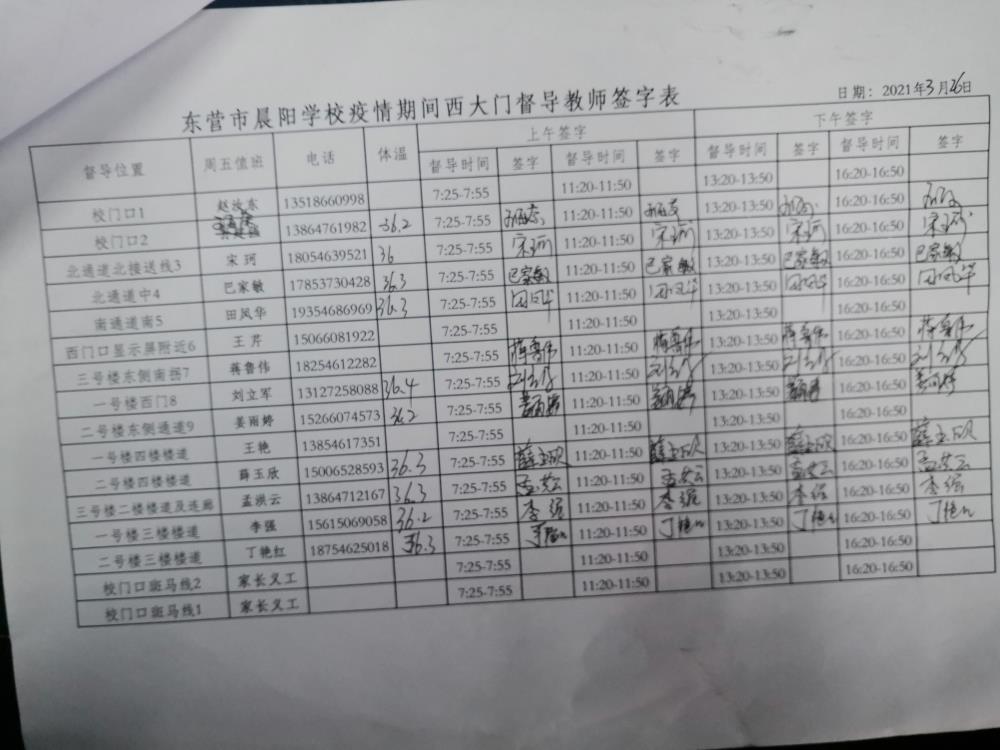 东营市晨阳学校疫情期间西大门督导教师签字表
日期：2021年3月26日
督导位置 周五值班 电话 体温 上午签字 下午签字
督导时间 签字 督导时间 签字 督导时间 签字 督导时间 签字
校门口1 赵汝东 13518660998 7:25-7:55 11:20-11:50 13:20-13:50 16:20-16:50
校门口2 13864761982 36.2 7:25-7:55 11:20-11:50 13:20-13:50 16:20-16:50
北通道北接送线3 宋珂 18054639521 36 7:25-7:55 宋珂 11:20-11:50 宋珂 13:20-13:50 宋珂 16:20-16:50 宋珂
北通道中4 巴家敏 17853730428 36.3 7:25-7:55 巴家敏 11:20-11:50 巴家敏 13:20-13:50 巴家敏 16:20-16:50 巴家敏
南通道南5 田凤华 19354686969 36.3 7:25-7:55 田凤华 11:20-11:50 田凤华 13:20-13:50 田凤华 16:20-16:50 田凤华
西门口显示屏附近6 王芹 15066081922 7:25-7:55 11:20-11:50 13:20-13:50 16:20-16:50
三号楼东侧南拐7 蒋鲁伟 18254612282 7:25-7:55 蒋鲁伟 11:20-11:50 蒋鲁伟 13:20-13:50 蒋鲁伟 16:20-16:50 蒋鲁伟
一号楼西门8 刘立军 13127258088 36.4 7:25-7:55 刘立军 11:20-11:50 刘立军 13:20-13:50 刘立军 16:20-16:50 刘立军
二号楼东侧通道9 姜雨婷 15266074573 36.2 7:25-7:55 姜雨婷 11:20-11:50 姜雨婷 13:20-13:50 姜雨婷 16:20-16:50 姜雨婷
一号楼四楼楼道 王艳 13854617351 7:25-7:55 11:20-11:50 13:20-13:50 16:20-16:50
二号楼四楼楼道 薛玉欣 15006528593 36.3 7:25-7:55 薛玉欣 11:20-11:50 薛玉欣 13:20-13:50 薛玉欣 16:20-16:50 薛玉欣
三号楼二楼楼道及连廊 孟洪云 13864712167 36.3 7:25-7:55 孟洪云 11:20-11:50 孟洪云 13:20-13:50 孟洪云 16:20-16:50 孟洪云
一号楼三楼楼道 李强 15615069058 36.2 7:25-7:55 李强 11:20-11:50 李强 13:20-13:50 李强 16:20-16:50 李强
二号楼三楼楼道 丁艳红 18754625018 36.3 7:25-7:55 丁艳红 11:20-11:50 丁艳红 13:20-13:50 丁艳红 16:20-16:50 丁艳红
校门口斑马线2 家长义工 7:25-7:55 11:20-11:50 13:20-13:50 16:20-16:50
校门口斑马线1 家长义工 7:25-7:55 11:20-11:50 13:20-13:50 16:20-16:50